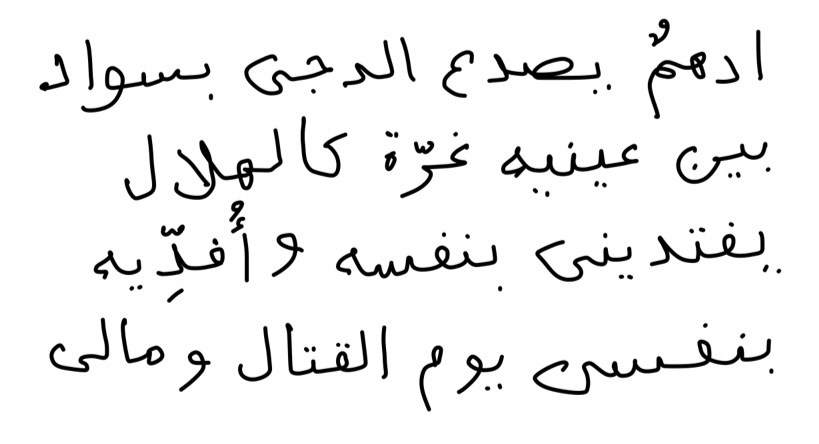 ادهمٌ يصدع الدجى بسواد
بين عينيه غرّة كالهلال
يفتدينى بنفسه وأُفدِّيه
بنفسى يوم القتال ومالى